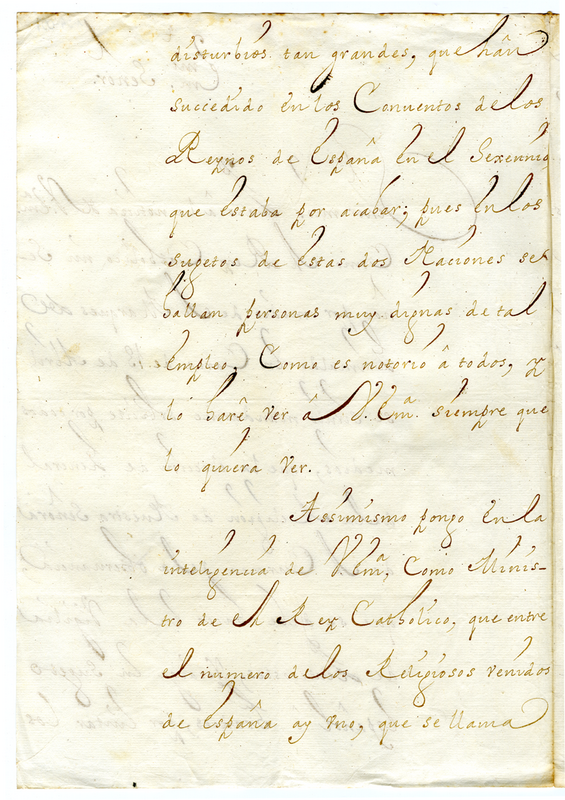 disturbios tan grandes, que hân
succedido en los Conventos de los
Reynos de España en el Sexennio
que estaba por acabar; pues en los
sugetos de estas dos Naciones se
hallan personas muy dignas de tal
empleo, Como es notorio â todos, y
lo harê ver â V. Em.ª siempre que
lo quiera ver.
Assimismo pongo en la
inteligencia de V. Em.ª, Como Minis-
tro de el Rey Catholico, que entre
el numero de los Religiosos venidos
de España ay vno, que se llama